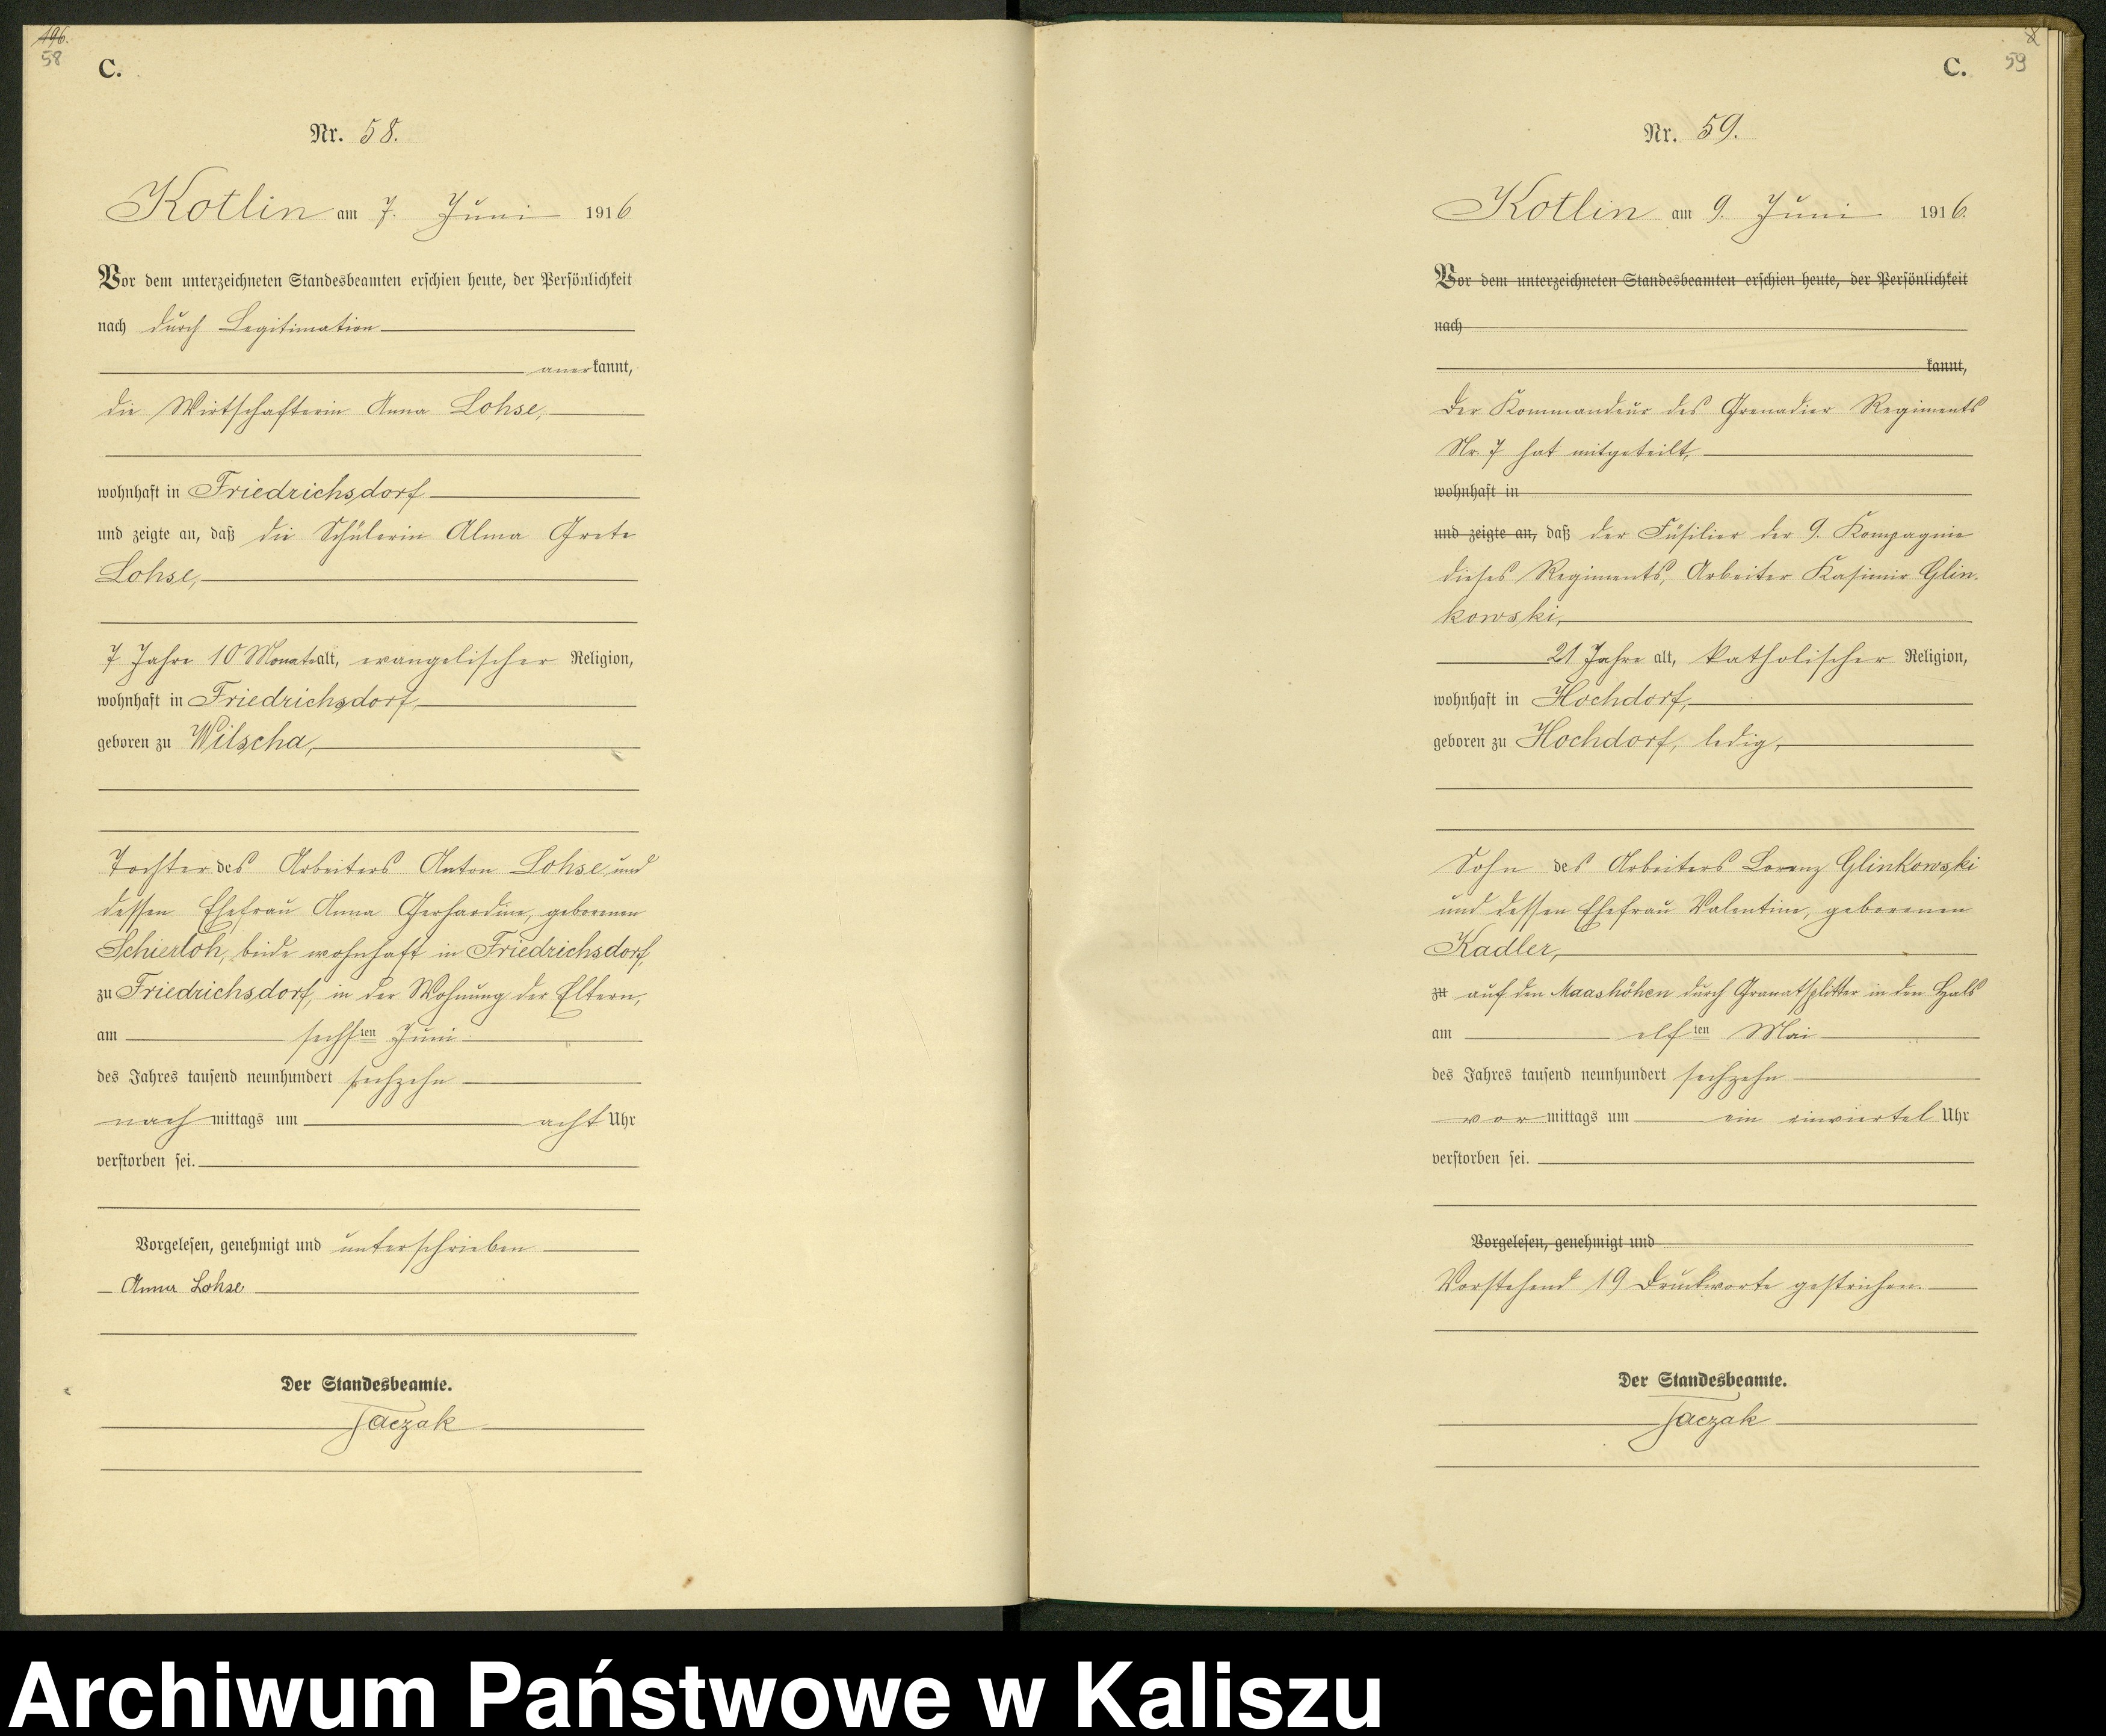 196.
58
C.
Nr. 58.
Kotlin am 7. Juni 1916
Vor dem unterzeichneten Standesbeamten erschien heute, der Persönlichkeit
nach durch Legitimation
anerkannt,
die Wirtschafterin Anna Lohse,
wohnhaft in Friedrichsdorf
und zeigte an, daß die Schülerin Alma Grete
Lohse,
7 Jahre 10 Monate alt, evangelischer Religion,
wohnhaft in Friedrichsdorf
geboren zu Wilscha,
Tochter des Arbeiters Anton Lohse und
dessen Ehefrau Anna Gerhardine, geborenen
Schierloh, beide wohnhaft in Friedrichsdorf,
zu Friedrichsdorf, in der Wohnung der Eltern,
am sechsten Juni
des Jahres tausend neunhundert sechzehn
nach mittags um acht Uhr
verstorben sei.
Vorgelesen, genehmigt und unterschrieben
Anna Lohse
Der Standesbeamte.
Taczak
59
C.
Nr. 59.
Kotlin am 9. Juni 1916.
Vor dem unterzeichneten Standesbeamten erschien heute, der Persönlichkeit
nach
kannt,
Der Kommandeur des Grenadier Regiments
Nr. 7 hat mitgeteilt,
wohnhaft in
und zeigte an, daß der Füsilier der 9. Kompagnie
dieses Regiments, Arbeiter Kasimir Glin-
kowski,
21 Jahre alt, katholischer Religion,
wohnhaft in Hochdorf,
geboren zu Hochdorf, ledig,
Sohn des Arbeiters Lorenz Glinkowski
und dessen Ehefrau Valentine, geborenen
Kadler,
zu auf den Maashöhen durch Granatsplitter in den Hals
am elften Mai
des Jahres tausend neunhundert sechzehn
vor mittags um ein einviertel Uhr
verstorben sei.
Vorgelesen, genehmigt und
Vorstehend 19 Druckworte gestrichen.
Der Standesbeamte.
Taczak
Archiwum Państwowe w Kaliszu